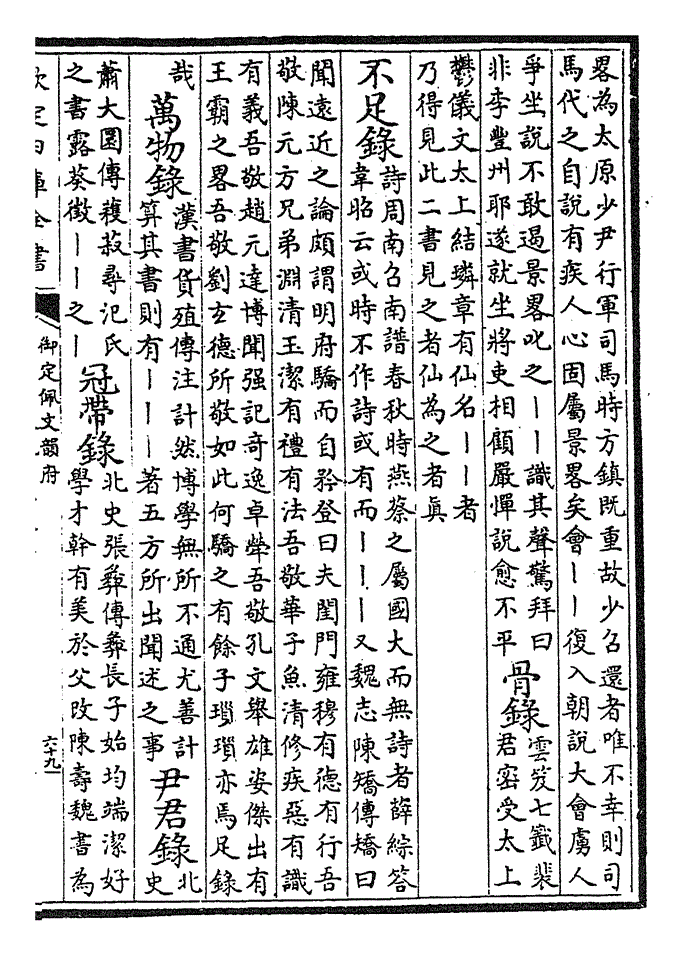 畧為太原少尹行軍司馬時方鎮既重故少召還者唯不幸則司
馬代之自說有疾人心固屬景畧矣會丨丨復入朝說大會虜人
爭坐說不敢遏景畧叱之丨丨識其聲驚拜曰
非李豐州耶遂就坐將吏相顧嚴憚說愈不平
骨錄
雲笈七籤裴
君密受太上
鬱儀文太上結璘章有仙名丨丨者
乃得見此二書見之者仙為之者真
不足錄
詩周南召南譜春秋時燕蔡之屬國大而無詩者薛綜答
韋昭云或時不作詩或有而丨丨丨又魏志陳矯傳矯曰
聞遠近之論頗謂明府驕而自矜登曰夫閨門雍穆有德有行吾
敬陳元方兄弟淵清玉潔有禮有法吾敬華子魚清修疾惡有識
有義吾敬趙元達博聞强記奇逸卓犖吾敬孔文舉雄姿傑出有
王霸之畧吾敬劉玄德所敬如此何驕之有餘子瑣瑣亦焉足錄
哉
萬物錄
漢書貨殖傳注計然博學無所不通尤善計
算其書則有丨丨丨著五方所出聞述之事
尹君錄
北
史
蕭大圜傳穫菽尋氾氏
之書露葵徵丨丨之丨
冠帶錄
北史張彝傳彝長子始均端潔好
學才幹有美於父改陳壽魏書為
欽定四庫全書
御定佩文韻府
六十九